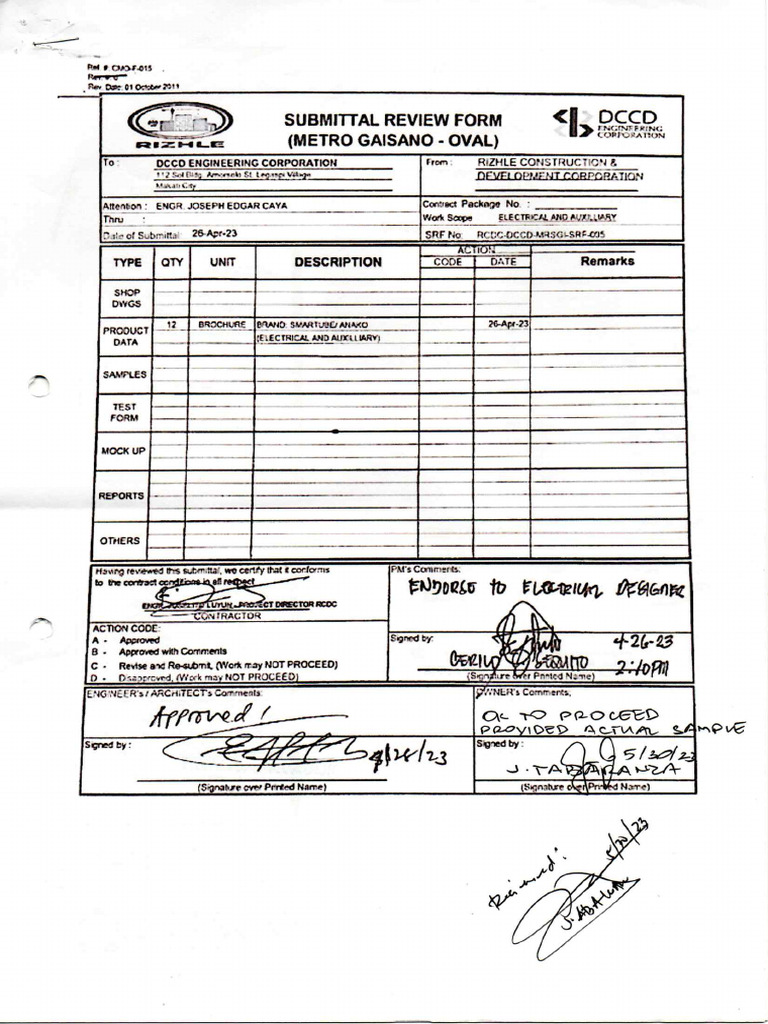 Ref. #: CMO-F-015
Rev. #: 0
Rev. Date: 01 October 2011
RIZHLE
SUBMITTAL REVIEW FORM
(METRO GAISANO - OVAL)
DCCD
ENGINEERING
CORPORATION
To : DCCD ENGINEERING CORPORATION
112 Sol Bldg. Amorsolo St. Legaspi Village
Makati City
From : RIZHLE CONSTRUCTION &
DEVELOPMENT CORPORATION
Attention : ENGR. JOSEPH EDGAR CAYA
Thru :
Date of Submittal: 26-Apr-23
Contract Package No. :
Work Scope ELECTRICAL AND AUXILLIARY
SRF No: RCDC-DCCD-MRSGI-SRF-005
TYPE QTY UNIT DESCRIPTION ACTION Remarks
CODE DATE
SHOP
DWGS
PRODUCT
DATA
12 BROCHURE BRAND: SMARTUBE/ ANAKO 26-Apr-23
(ELECTRICAL AND AUXILLIARY)
SAMPLES
TEST
FORM
MOCK UP
REPORTS
OTHERS
Having reviewed this submittal, we certify that it conforms
to the contract conditions in all respect
LUYUN - PROJECT DIRECTOR RCDC
CONTRACTOR
ACTION CODE:
A - Approved
B - Approved with Comments
C - Revise and Re-submit, (Work may NOT PROCEED)
D - Disapproved, (Work may NOT PROCEED)
PM's Comments:
ENDORSE TO ELECTRICAL DESIGNER
Signed by: 4-26-23
2:10PM
(Signature over Printed Name)
ENGINEER's / ARCHITECT's Comments:
Approved!
Signed by : 4/28/23
(Signature over Printed Name)
OWNER's Comments;
OK TO PROCEED
PROVIDED ACTUAL SAMPLE
Signed by : 5/30/23
(Signature over Printed Name)
Received: 5/30/23